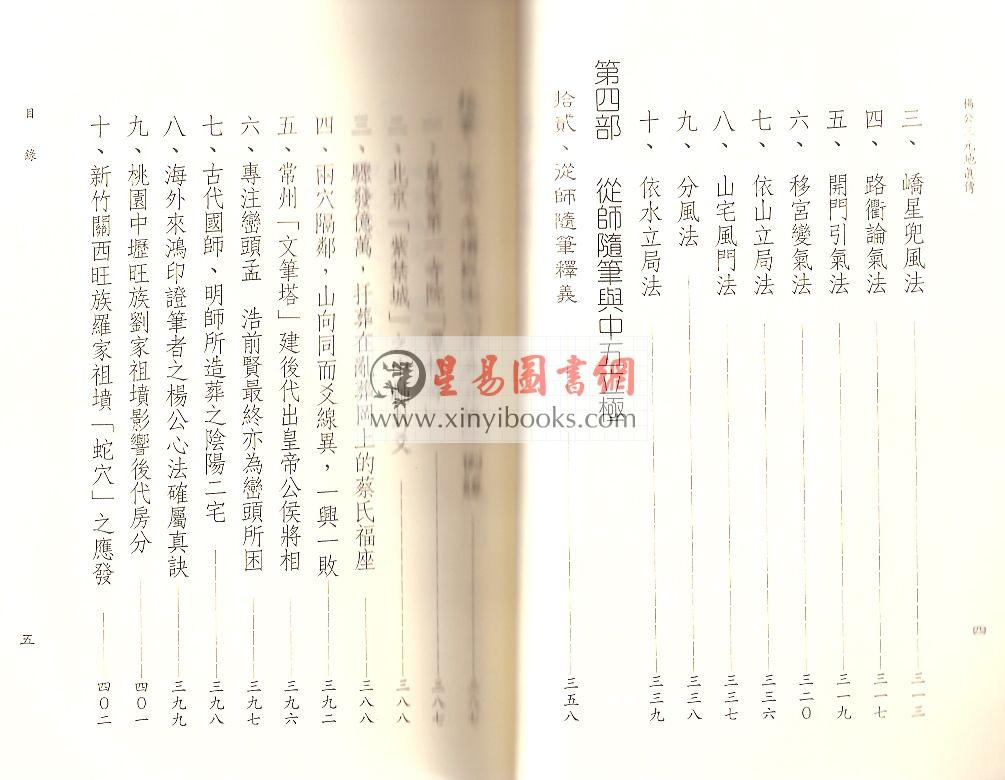 三、嶠星兜風法 三一三
四、路衝論氣法 三一七
五、開門引氣法 三一九
六、移宮變氣法 三二0
七、依山立局法 三三六
八、山宅風門法 三三七
九、分風法 三三八
十、依水立局法 三三九
第四部 從師隨筆與中五立極
拾貳、從師隨筆釋義 三五八
四
三八七
三八七
二、北京「紫禁城」之 爻 三八八
三、驟發億萬，扦葬在亂葬崗上的蔡氏福座 三八八
四、兩穴隔鄰，山向同而爻線異，一興一敗 三九二
五、常州「文筆塔」建後代出皇帝公侯將相 三九六
六、專注巒頭孟 浩前賢最終亦為巒頭所困 三九七
七、古代國師、明師所造葬之陰陽二宅 三九八
八、海外來鴻印證筆者之楊公心法確屬真訣 三九九
九、桃園中壢旺族劉家祖墳影響後代房分 四0一
十、新竹關西旺族羅家祖墳「蛇穴」之應發 四0二
目錄
五
星易圖書網
www.xinyibooks.com